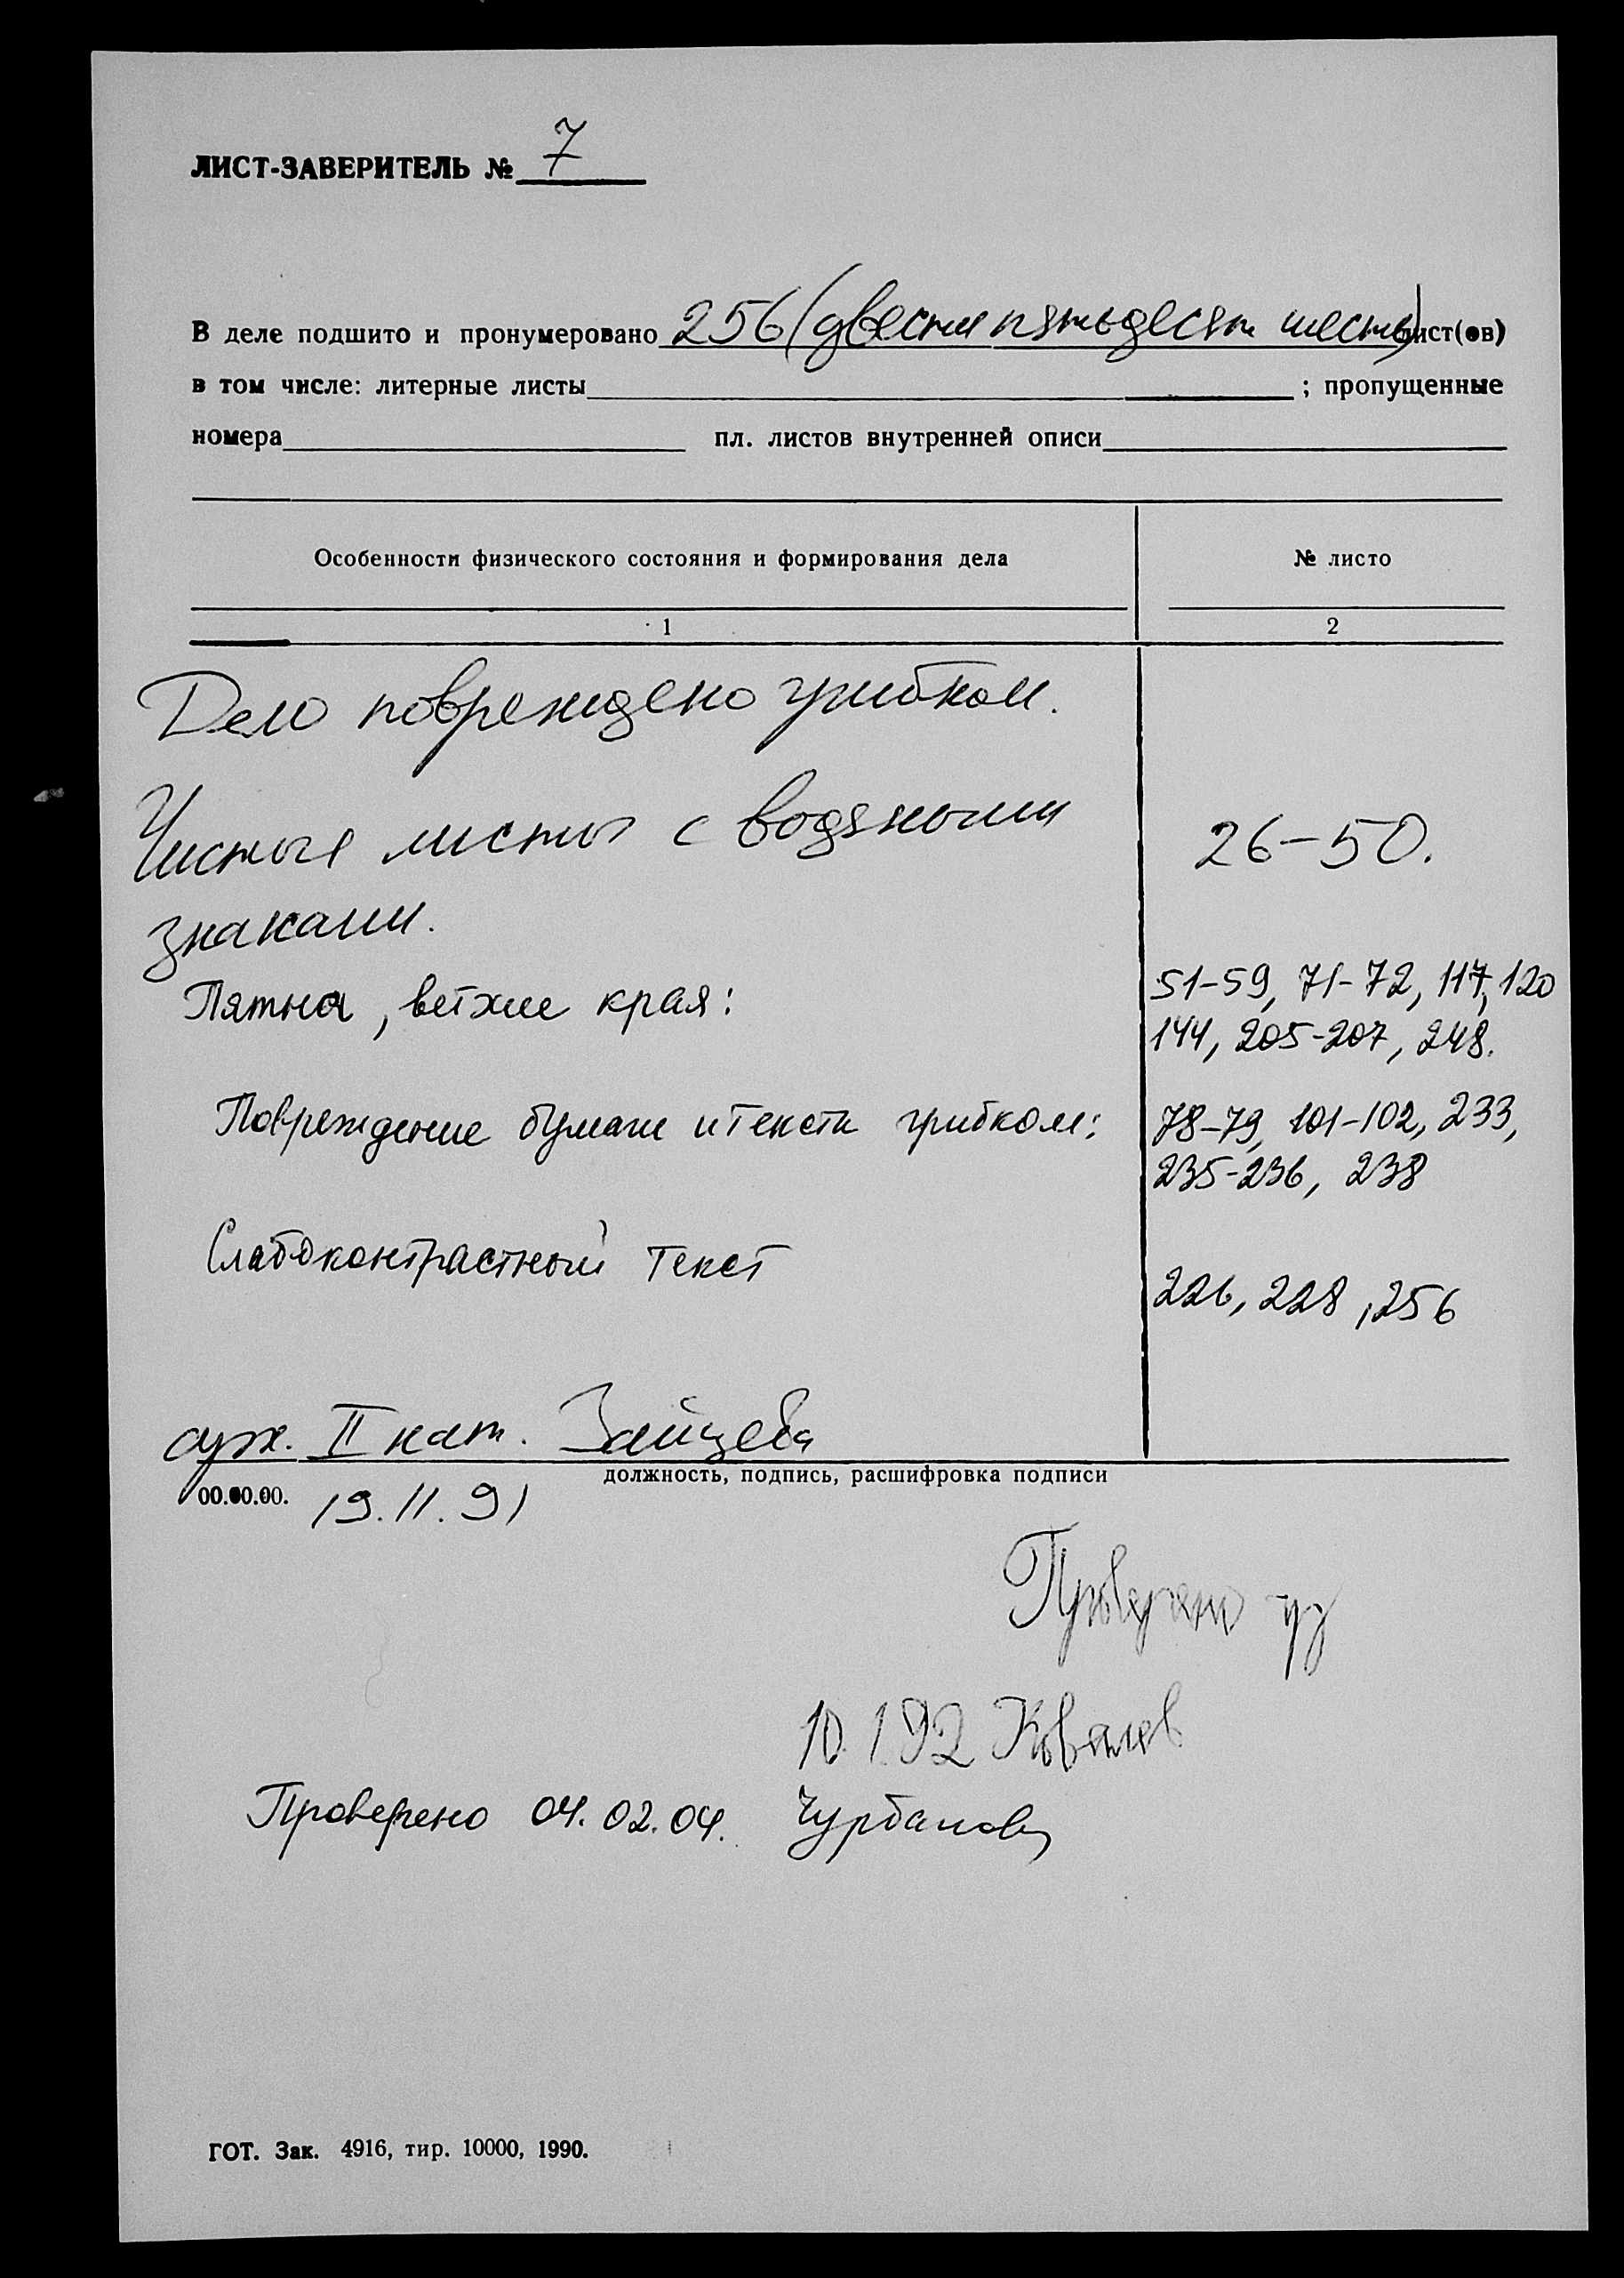 ЛИСТ-ЗАВЕРИТЕЛЬ № 7
В деле подшито и пронумеровано 256 (двести пятьдесят шесть) лист(ов)
в том числе: литерные листы ; пропущенные
номера пл. листов внутренней описи
Особенности физического состояния и формирования дела № листо
1 2
Дело повреждено грибком.
Чистые листы с водяными 26-50.
знаками.
Пятна, ветхие края: 51-59, 71-72, 117, 120
144, 205-207, 248.
Повреждение бумаги и текста грибком: 78-79, 101-102, 233,
235-236, 238
Слабоконтрастный текст
226, 228, 256
II кат. Зайцева
должность, подпись, расшифровка подписи
00.00.00. 19.11.91
Проверено
10.1.92 Ковалев
Проверено 04.02.04. Чурбанова
ГОТ. Зак. 4916, тир. 10000, 1990.